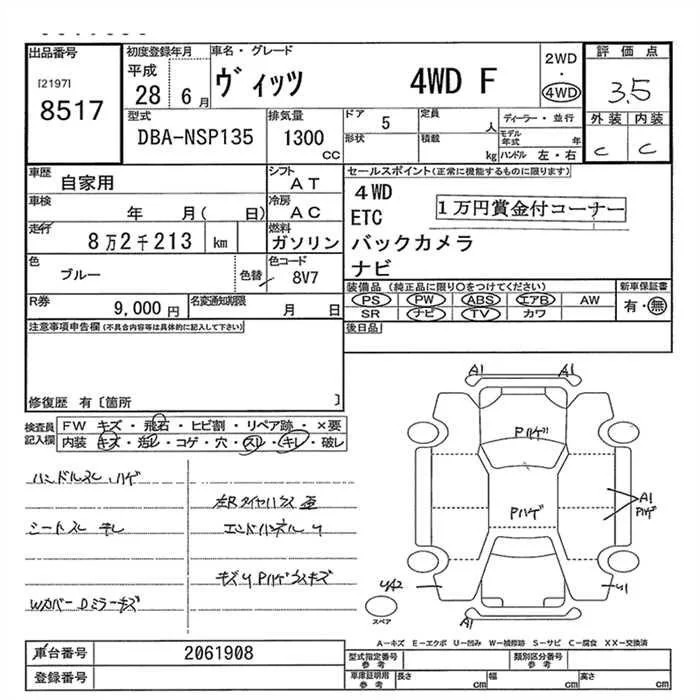 出品番号
[2197]
8517
初度登録年月
平成
28 6月
車名・グレード
ヴィッツ 4WD F
2WD
・
4WD
評価点
3.5
外装 内装
C C
型式
DBA-NSP135
排気量
1300
CC
ドア 5
形状
定員 人
積載 kg
ディーラー・並行
モデル年式 年
ハンドル 左・右
車歴
自家用
シフト
AT
車検
年 月( 日)
冷房
AC
走行
8万2千213 km
燃料
ガソリン
色
ブルー
色替
色コード
8V7
R券
9,000円
名変通知期限
月 日
セールスポイント(正常に機能するものに限ります)
4WD
ETC
1万円賞金付コーナー
バックカメラ
ナビ
装備品 (純正品に限り○をつけてください)
新車保証書
PS PW ABS エアB AW
有・無
SR ナビ TV カワ
後日品
注意事項申告欄(不具合内容等は具体的に記入して下さい)
修復歴 有〔箇所 〕
検査員
記入欄
FW キズ・飛石・ヒビ割・リペア跡・×要
内装 キズ・汚レ・コゲ・穴・スレ・キレ・破レ
ハンドルスレ ハゲ
左Rタイヤハウス
シートスレ キレ
Wカバー Dミラーキズ
A1
A1
Pハゲ
Pハゲ
A1
Pハゲ
A1
スペア
A-キズ E-エクボ U-凹み W-補修跡 S-サビ C-腐食 XX-交換済
車台番号
2061908
登録番号
型式指定番号
参考
類別区分番号
参考
車庫証明用
参考
長さ cm
幅 cm
高さ cm